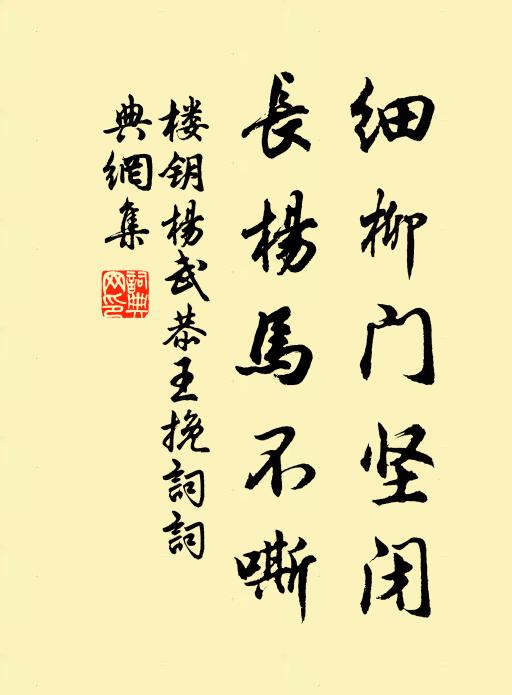 细柳门坚闭
長楊馬不嘶
楼钥楊武恭王挽詞詞
典網集
詞典網印